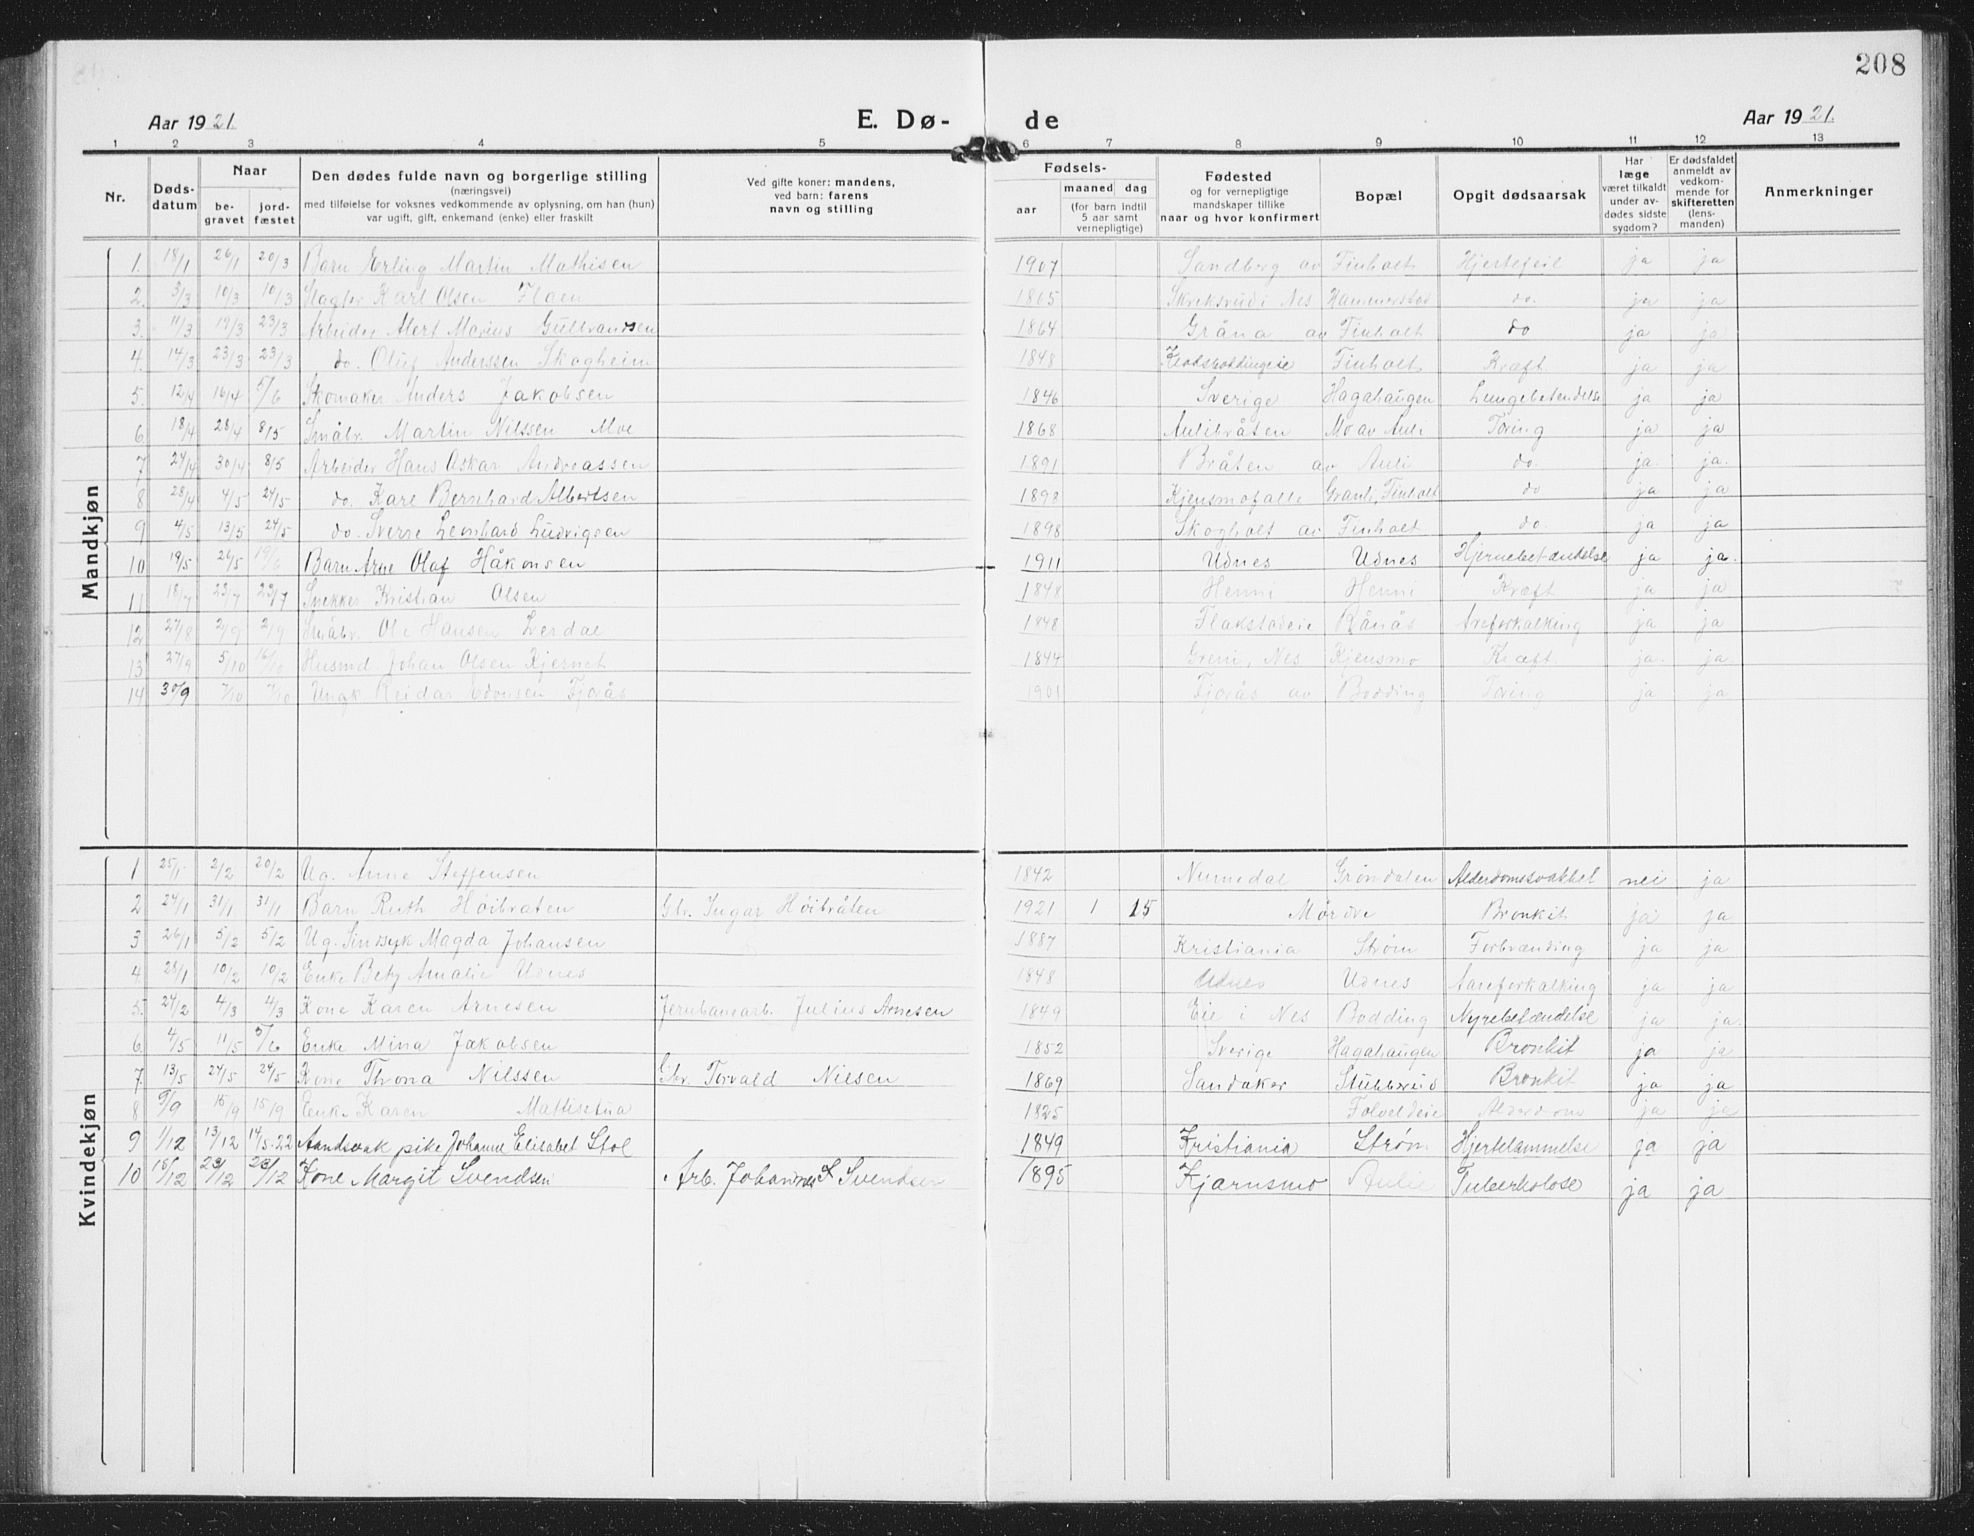 208
Aar 1921.
E. Dø-
de
Aar 1921.
1 2 3 4 5 6 7 8 9 10 11 12 13
Nr.
Døds-
datum
Naar
be-
gravet
jord-
fæstet
Den dødes fulde navn og borgerlige stilling
(næringsvei)
med tilføielse for voksnes vedkommende av oplysning, om han (hun)
var ugift, gift, enkemand (enke) eller fraskilt
Ved gifte koner: mandens,
ved barn: farens
navn og stilling
Fødsels-
aar
maaned dag
(for barn indtil
5 aar samt
vernepligtige)
Fødested
og for vernepligtige
mandskaper tillike
naar og hvor konfirmert
Bopæl
Opgit dødsaarsak
Har
læge
været tilkaldt
under av-
dødes sidste
sygdom?
Er dødsfaldet
anmeldt av
vedkom-
mende for
skifteretten
(lens-
manden)
Anmerkninger
Mandkjøn
1. 18/1 26/1 20/3 Barn Erling Martin Mathisen 1907 Sandberg av Finholt Hjertefeil ja ja
2. 3/3 10/3 10/3 Karl Olsen Flaen 1865 i Nes do. ja ja
3. 11/3 19/3 23/3 Arbeider Alert Marius Gulbrandsen 1864 Gråna av Finholt do ja ja
4. 14/3 23/3 23/3 do. Oluf Anderssen Skogheim 1848 Finholt Kræft ja ja
5. 12/4 16/4 5/6 Skomaker Anders Jakobsen 1846 Sverige Hagahaugen Lungebetendelse ja ja
6. 18/4 28/4 8/5 Småbr. Martin Nilssen Moe 1868 Aulibråten Mo av Auli Tæring ja ja
7 24/4 30/4 8/5 Arbeider Hans Oskar Andreassen 1891 Bråten av Auli do. ja. ja.
8 28/4 4/5 24/5 do. Kare Bernhard Albertsen 1898 Granli, Finholt do ja ja
9 4/5 13/5 24/5 do. Sverre Leonhard Ludvigsen 1898 Skogholt av Finholt do. ja ja
10 19/5 26/5 19/6 Barn Arne Olaf Håkonsen 1911 Udnes Udnes Hjernebetændelse ja ja.
11 18/7 23/7 23/7 Snekker Kristian Olsen 1848 Henni Henni Kræft ja ja
12 27/8 2/9 2/9 Småbr. Ole Hansen Lerdal 1848 Flakstadeie Rånås Areforkalking ja ja
13 27/9 5/10 16/10 Husmd Johan Olsen Kjernet 1844 Greni, Nes Kjensmo Kræft. ja. ja.
14 30/9 7/10 7/10 Ungk Reidar Edvinsen Fjerås 1901 Fjerås av Bodding Tæring ja ja
Kvindekjøn
1 25/1 2/2 20/2 Ug. Anne Steffensen 1842 Numedal Grøndalen Alderdomssvakhet nei ja
2 24/1 31/1 31/1 Barn Ruth Høibraten Gbr. Ingar Høibråten 1921 1 15 Mårdre Bronkit ja ja
3 26/1 5/2 5/2 Ug. Sindsyk Magda Johansen 1887 Kristiania Strøm Forbrænding ja ja
4. 28/1 10/2 10/2 Enke Betzy Amalie Udnes 1848 Udnes Udnes Aareforkalking ja ja
5. 24/2 4/3 4/3 Kone Karen Arnesen Jernbanearb. Julius Arnesen 1849 Eie i Nes Bodding Nyrebetændelse ja ja.
6. 4/5 11/5 5/6 Enke Mina Jakobsen 1852 Sverige Hagahaugen Bronkit ja ja
7. 13/5 24/5 24/5 Kone Throna Nilssen Gbr. Torvald Nilsen 1869 Sandaker Stubbreid Bronkit ja ja
8 9/9 15/9 15/9 Enke Karen Mattisstua 1825 Folveldeie Alderdom ja ja
9 1/12 13/12 14/5-22 Aandsvak pike Johanne Elisabet Stol 1849 Kristiania Strøm Hjertelammelse ja ja
10 15/12 23/12 23/12 Kone Margit Svendsen Arb. Johannes L Svendsen 1895 Kjærnsmo Aulie Tuberkolose ja ja